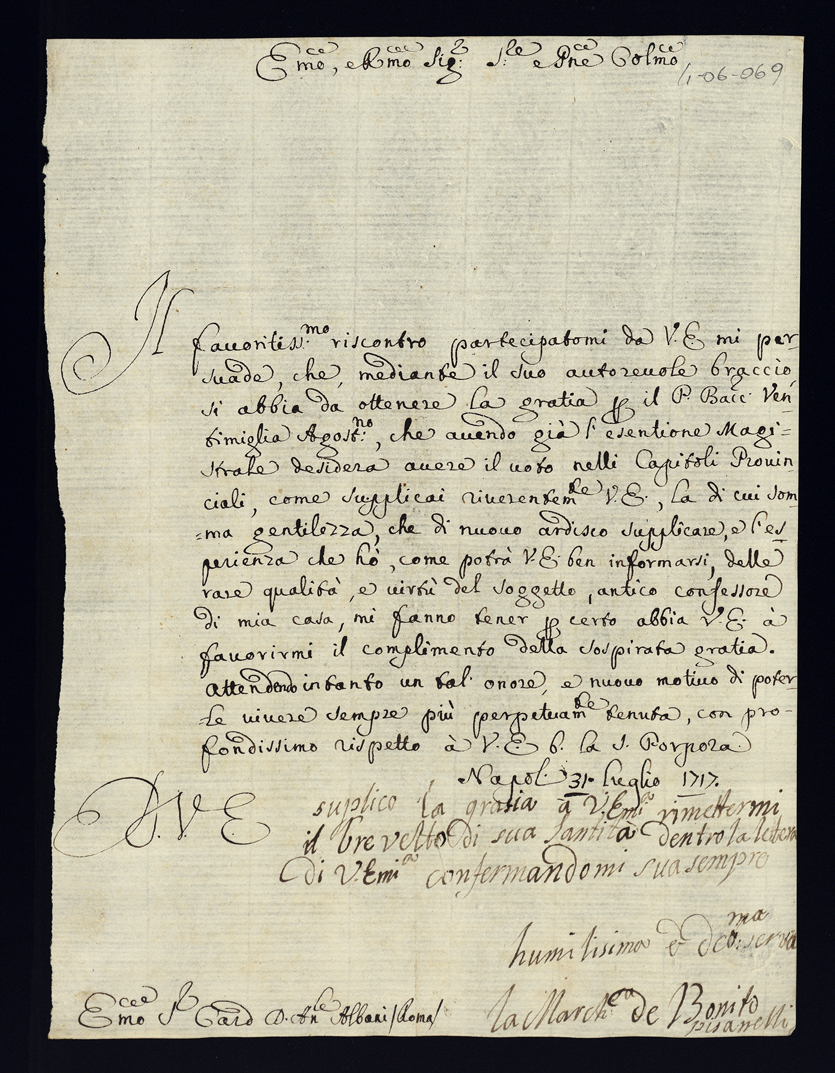 Em̃o, e Rm̃o Sig.r S.re e Pñe Colm̃o
4-06-069
Il fauoritiss.mo riscontro partecipatomi da V.E mi per-
suade, che, mediante il suo autoreuole braccio,
si abbia da ottenere la gratia ꝑ il P. Bacc. Ven-
timiglia Agost.no, che auendo già l'esentione Magi-
strale desidera auere il uoto nelli Capitoli Prouin-
ciali, come supplicai riuerentem.te V.E., la di cui som-
=ma gentilezza, che di nuouo ardisco supplicare, e l'es-
perienza che hò, come potrà V.E. ben informarsi, delle
rare qualità, e uirtù del soggetto, antico confessore
di mia casa, mi fanno tener ꝑ certo abbia V.E. à
fauorirmi il complimento della sospirata gratia.
Attendendo intanto un tal' onore, e nuouo motiuo di poter-
-le uiuere sempre più perpetuam.te tenuta, con pro-
fondissimo rispetto à V.E b. la S. Porpora.
Napol. 31. luglio 1717.
D. V. E
suplico la gratia a V.Emi.a rimettermi
il breuetto di sua Santità dentro la letera
di V.Emi.a confermandomi sua sempre
humilisima et deu.ma serua
la March.a de Bonito
pisanelli
Em̃o S.r Card D. An.le Albani /Roma/